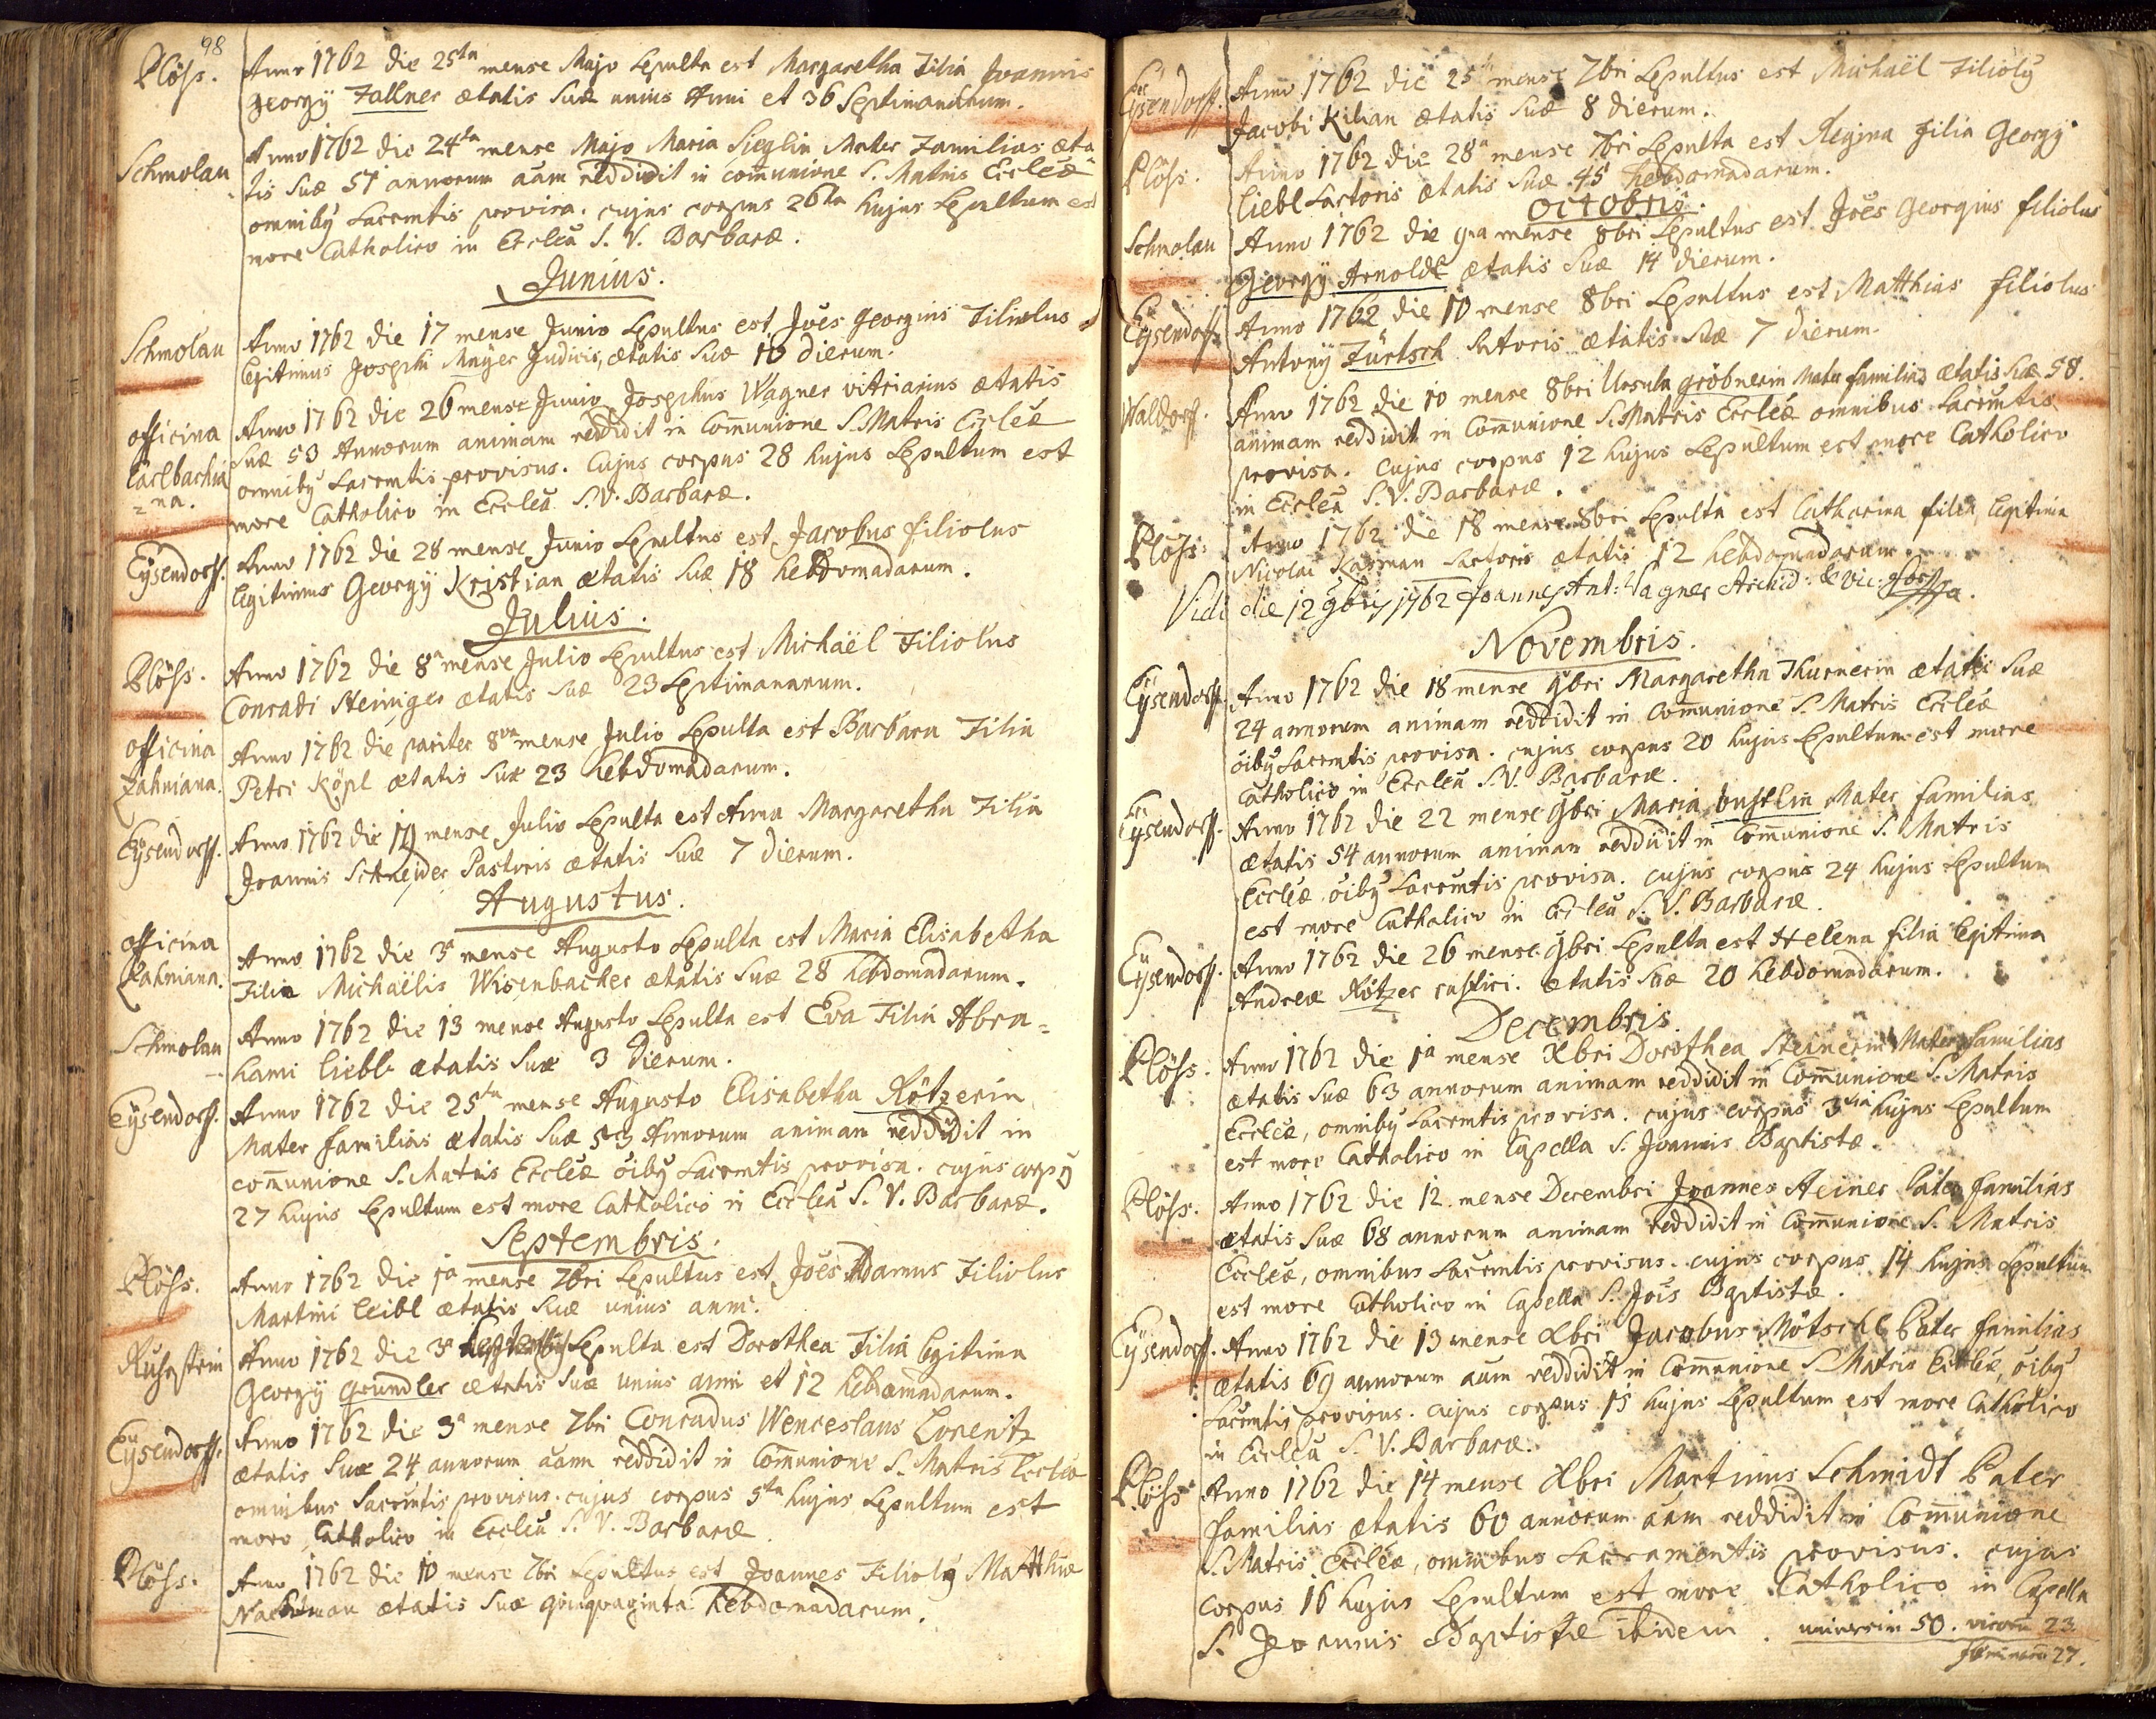 98
Plöss. Anno 1762 die 25ta mense Majo Sepulta est Margaretha Filia Joannis
Georgÿ Fallner ætatis Suæ unius Anni et 36 Septimanarum.
Schmolau Anno 1762 die 24ta mense Majo Maria Sieglin Mater Familias æta
tis Suæ 57 annorum aam reddidit in comunione S. Matris Eccleæ
omnibꝰ Sacrmtis provisa. cujus corpus 26ta hujus Sepultum est
more Catholico in Ecclea S. V. Barbaræ.
Junius.
Schmolau Anno 1762 die 17 mense Junio Sepultus est Joës Georgius Filiolus
legitimus Josephi Mayer Judicis, ætatis Suæ 10 dierum.
officina Carlbachia=na. Anno 1762 die 26 mense Junio Josephus Wagner vitriarius ætatis
Suæ 53 Annorum animam reddidit in Comunione S. Matris Eccleæ
omnibꝰ Sacrmtis provisus. Cujus corpus 28 hujus Sepultum est
more Catholico in Ecclea S. V. Barbaræ.
Eÿsendorf. Anno 1762 die 28 mense Junio Sepultus est Jacobus filiolus
legitimus Georgÿ Kristian ætatis Suæ 18 hebdomadarum.
Julius.
Plöss. Anno 1762 die 8a mense Julio Sepultus est Michaël Filiolus
Conradi Steiniger ætatis Suæ 23 Septimanarum.
officina Zahniana. Anno 1762 die pariter 8va mense Julio Sepulta est Barbara Filia
Petri Köpl ætatis Suæ 23 hebdomadarum.
Eÿsendorf. Anno 1762 die 19 mense Julio Sepulta est Anna Margaretha Filia
Joannis Schneider Pastoris ætatis Suæ 7 dierum.
Augustus.
officina Zahniana. Anno 1762 die 3a mense Augusto Sepulta est Maria Elisabetha
Filia Michaëlis Wisenbacher ætatis Suæ 28 hebdomadarum.
Schmolau Anno 1762 die 13 mense Augusto Sepulta est Eva Filia Abra=
hami Liebl ætatis Suæ 3 dierum.
Eÿsendorf. Anno 1762 die 25ta mense Augusto Elisabetha Rötzerin
Mater familias ætatis Suæ 53 Annorum animam reddidit in
comunione S. Matris Eccleæ oibꝰ Sacrmtis provisa. cujus corpꝰ
27 hujus Sepultum est more Catholico in Ecclea S. V. Barbaræ.
Septembris.
Plöss. Anno 1762 die 1a mense 7bri Sepultus est Joës Adamus Filiolus
Martini Leibl ætatis Suæ unius anni.
Ruhstein Anno 1762 die 3a Sepulta est Dorothea Filia legitima
Georgÿ Grundler ætatis Suæ unius anni et 12 hebdomadarum.
Eÿsendorf. Anno 1762 die 3a mense 7bri Conradus Wenceslaus Lorenitz
ætatis Suæ 24 annorum aam reddidit in Comunione S. Matris Eccleæ
omnibus Sacrmtis provisus. cujus corpus 5ta hujus Sepultum est
more Catholico in Ecclea S. V. Barbaræ.
Plöss. Anno 1762 die 10 mense 7bri Sepultus est Joannes Filiolꝰ Matthiæ
Nachtman ætatis Suæ quinquaginta hebdomadarum.
Eÿsendorf. Anno 1762 die 25 mense 7bri Sepultus est Michaël Filiolꝰ
Jacobi Kilian ætatis Suæ 8 dierum.
Plöss. Anno 1762 die 28a mense 7bri Sepulta est Regina Filia Georgÿ
Liebl Sartoris ætatis Suæ 45 hebdomadarum.
Octobris.
Schmolau Anno 1762 die 9na mense 8bri Sepultus est Joës Georgius filiolus
Georgÿ Arnoldt ætatis Suæ 14 dierum.
Eÿsendorf. Anno 1762 die 10 mense 8bri Sepultus est Matthias filiolus
Antonÿ Fürtsch Sutoris ætatis Suæ 7 dierum.
Waldorf. Anno 1762 die 10 mense 8bri Ursula Gröbnerin Mater familias ætatis Suæ 58.
animam reddidit in Comunione S. Matris Eccleæ omnibus Sacrmtis
provisa. Cujus corpus 12 hujus Sepultum est more Catholico
in Ecclea S. V. Barbaræ.
Plöss. Anno 1762 die 18 mense 8bri Sepulta est Catharina filia legitima
Nicolai Karman Sartoris ætatis 12 hebdomadarum.
Vidi die 12 9bris 1762 Joannes Ant: Wagner Archid: & Vic: For:
Novembris.
Eÿsendorf. Anno 1762 die 18 mense 9bri Margaretha Thurnerin ætatis Suæ
24 annorum animam reddidit in Comunione S. Matris Eccleæ
oibꝰ Sacrmtis provisa. cujus corpus 20 hujus Sepultum est more
Catholico in Ecclea S. V. Barbaræ.
Eÿsendorf. Anno 1762 die 22 mense 9bri Maria Mater familias
ætatis 54 annorum animam reddidit in Comunione S. Matris
Eccleæ oibꝰ Sacrmtis provisa. cujus corpus 24 hujus Sepultum
est more Catholico in Ecclea S. V. Barbaræ.
Eÿsendorf. Anno 1762 die 26 mense 9bri Sepulta est Helena filia legitima
Andreæ Rötzer rustici. ætatis Suæ 20 hebdomadarum.
Decembris.
Plöss. Anno 1762 die 1a mense Xbri Dorothea Steinerin Mater familias
ætatis Suæ 63 annorum animam reddidit in Comunione S. Matris
Eccleæ, omnibꝰ Sacrmtis provisa. cujus corpus 3tia hujus Sepultum
est more Catholico in Capella S. Joannis Baptistæ.
Plöss. Anno 1762 die 12. mense Decembri Joannes Steiner Pater familias
ætatis Suæ 68 annorum animam reddidit in Comunione S. Matris
Eccleæ, omnibus Sacrmtis provisus. cujus corpus 14 hujus Sepultum
est more Catholico in Capella S. Jois Baptistæ.
Eÿsendorf. Anno 1762 die 13 mense Xbri Jacobus Mötschl Pater familias
ætatis 69 annorum aam reddidit in Comunione S. Matris Eccleæ, oibꝰ
Sacrmtis provisus. cujus corpus 15 hujus Sepultum est more Catholico
in Ecclea S. V. Barbaræ.
Plöss. Anno 1762 die 14 mense Xbri Martinus Schmidt Pater
familias ætatis 60 annorum aam reddidit in Comunione
S. Matris Eccleæ, omnibus Sacramentis provisus. cujus
corpus 16 hujus Sepultum est more Catholico in Capella
S. Joannis Baptistæ ibidem. universim 50. viroru 23.
27.